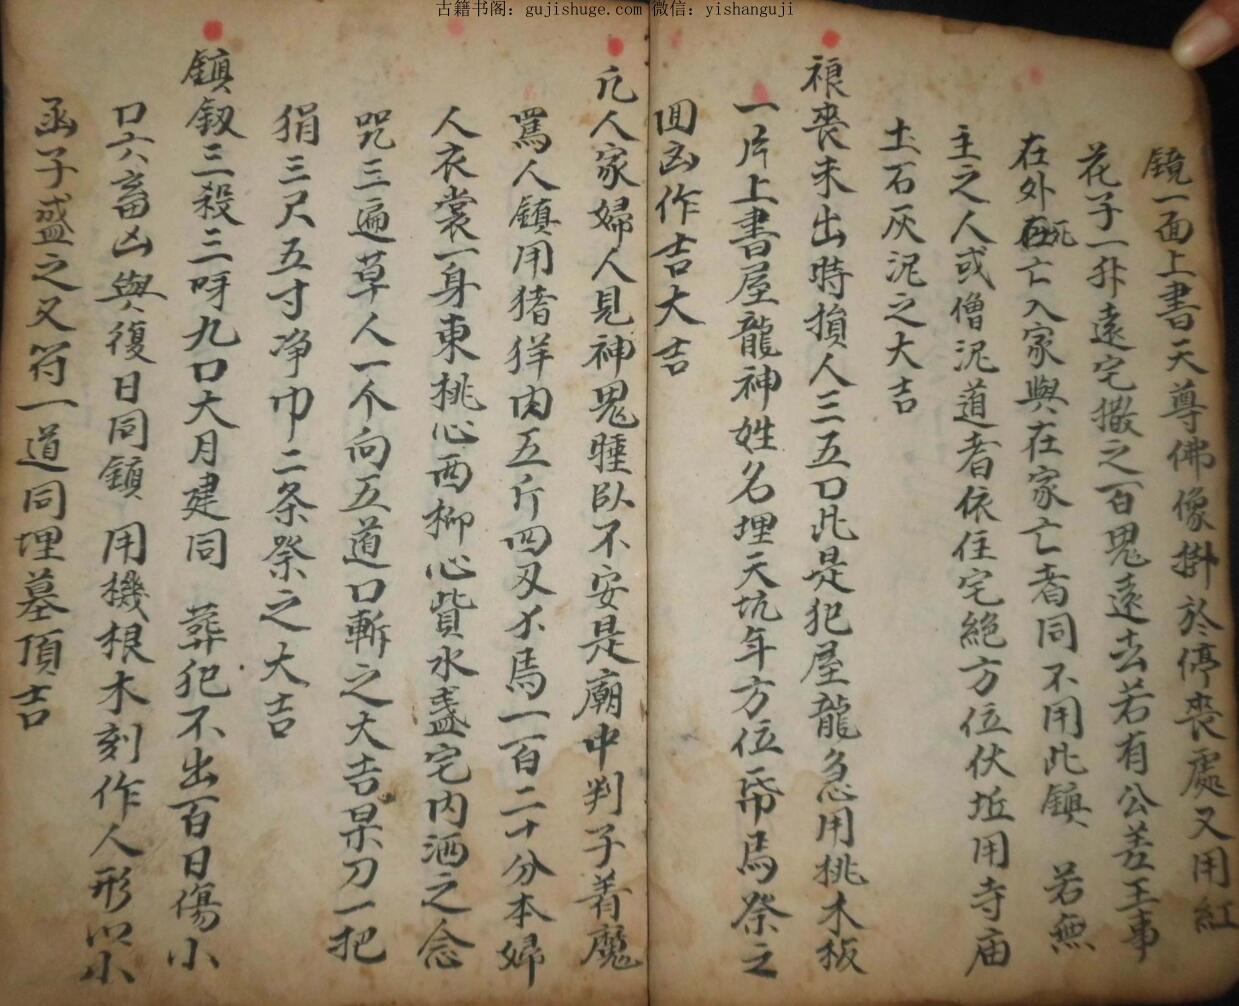 古籍书阁：gujishuge.com 微信：yishanguji
镜一面上書天尊佛像掛於停喪處又用紅
花子一升遠宅撒之百鬼遠去若有公差王事
在外死亡入家與在家亡者同不用此鎮 若無
主之人或僧泥道者依住宅絶方位伏坵用寺庙
土石灰泥之大吉
裉喪未出時損人三五口此是犯屋龍急用挑木板
一片上書屋龍神姓名埋天坑年方位帋馬祭之
囬凶作吉大吉
凢人家婦人見神鬼睡卧不安是廟中判子着魔
罵人鎮用猪羊肉五斤四刄才馬一百二十分本婦
人衣裳一身東挑心西柳心貲水盞宅内洒之念
咒三遍草人一个向五道口斬之大吉杲刀一把
狷三尺五寸净巾二条祭之大吉
鎮釼三殺三呀九口大月建同 葬犯不出百日傷小
口六畜凶與復日同鎮 用機根木刻作人形以小
函子盛之又符一道同埋墓頂吉